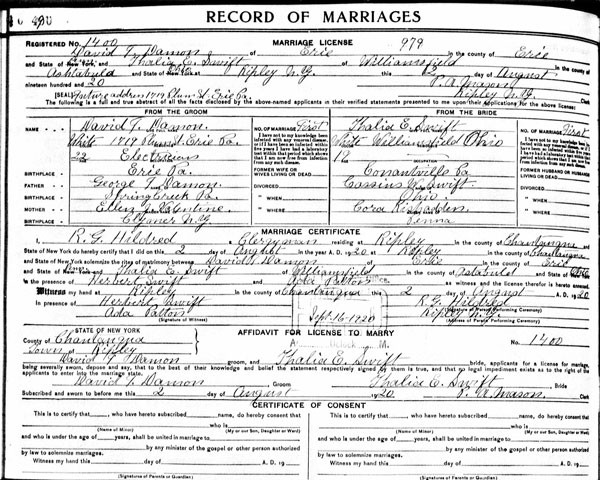 RECORD OF MARRIAGES
REGISTERED No. 1400 MARRIAGE LICENSE 979
David T. Damon of Erie in the county of Erie
and State of New York, and Thalia E. Swift of Williamsfield in the county of
Ashtabula and State of New York at Ripley N.Y. this 2 day of August
nineteen hundred and 20 P. A. Mason
[SEAL] Future address 1719 Plum St. Erie Pa. Ripley N.Y. Clerk
The following is a full and true abstract of all the facts disclosed by the above-named applicants in their verified statements presented to me upon their applications for the above license.
FROM THE GROOM FROM THE BRIDE
NAME David T. Damon. NO. OF MARRIAGE First Thalia E. Swift NO. OF MARRIAGE First
White 1719 Plum St. Erie Pa. White Williamsfield Ohio
22 Electrician 19
OCCUPATION
I have not to my knowledge been infected with any venereal disease, or if I have been infected within five years I have had a laboratory test within that period which shows that I am now free from infection from any such disease.
FORMER WIFE OR WIVES LIVING OR DEAD
FORMER HUSBAND OR HUSBANDS LIVING OR DEAD
BIRTHPLACE Erie Pa. Conneautville Pa
FATHER George T. Damon DIVORCED Cassius W. Swift DIVORCED
BIRTHPLACE Spring Creek Pa. " WHEN Ohio " WHEN
MOTHER Ellen J. " WHEN Cora " WHEN
BIRTHPLACE Clymer N.Y. Penna
MARRIAGE CERTIFICATE
I, R. G. Hildred a Clergyman residing at Ripley in the county of Chautauqua and
State of New York do hereby certify that I did on this 2 day of August in the year A. D. 1920 at Ripley in the county of Chautauqua
and State of New York solemnize the rites of matrimony between David T. Damon of Erie in the county of Erie
and Thalia E. Swift of Williamsfield in the county of Ashtabula and State of
in the presence of Herbert Swift and Ada Patton as witnesses, and the license therefor is hereto annexed.
Witness my hand at Ripley in the county of Chautauqua this 2 day of August A. D. 1920
In the presence of Herbert Swift R. G. Hildred
(Signature of Person Performing Ceremony)
Ada Patton Sept. 16 1920 Ripley N.Y.
(Signature of Witness) (Address of Person Performing Ceremony)
STATE OF NEW YORK AFFIDAVIT FOR LICENSE TO MARRY No. 1400
County of Chautauqua
Town of Ripley
David T. Damon groom, and Thalia E. Swift bride, applicants for a license for marriage,
being severally sworn, depose and say, that to the best of their knowledge and belief the statement respectively signed by them is true, and that no legal impediment exists as to the right of the
applicants to enter into the marriage state.
David T. Damon Groom Thalia E. Swift, Bride
Subscribed and sworn to before me this 2 day of August 1920 P. A. Mason, Clerk
CERTIFICATE OF CONSENT
This is to certify that , who have hereto subscribed name, do hereby consent This is to certify that , who have hereto subscribed name, do hereby consent
that who is that who is
(Name of Minor) (My or our Son, Daughter or Ward) (Name of Minor) (My or our Son, Daughter or Ward)
and who is under the age of years, shall be united in marriage to and who is under the age of years, shall be united in marriage to
by any minister of the gospel or other person authorized by any minister of the gospel or other person authorized
by law to solemnize marriages. by law to solemnize marriages.
Witness my hand this day of A. D. 19 Witness my hand this day of A. D. 19
(Signatures of Parents or Guardian) (Signatures of Parents or Guardian)